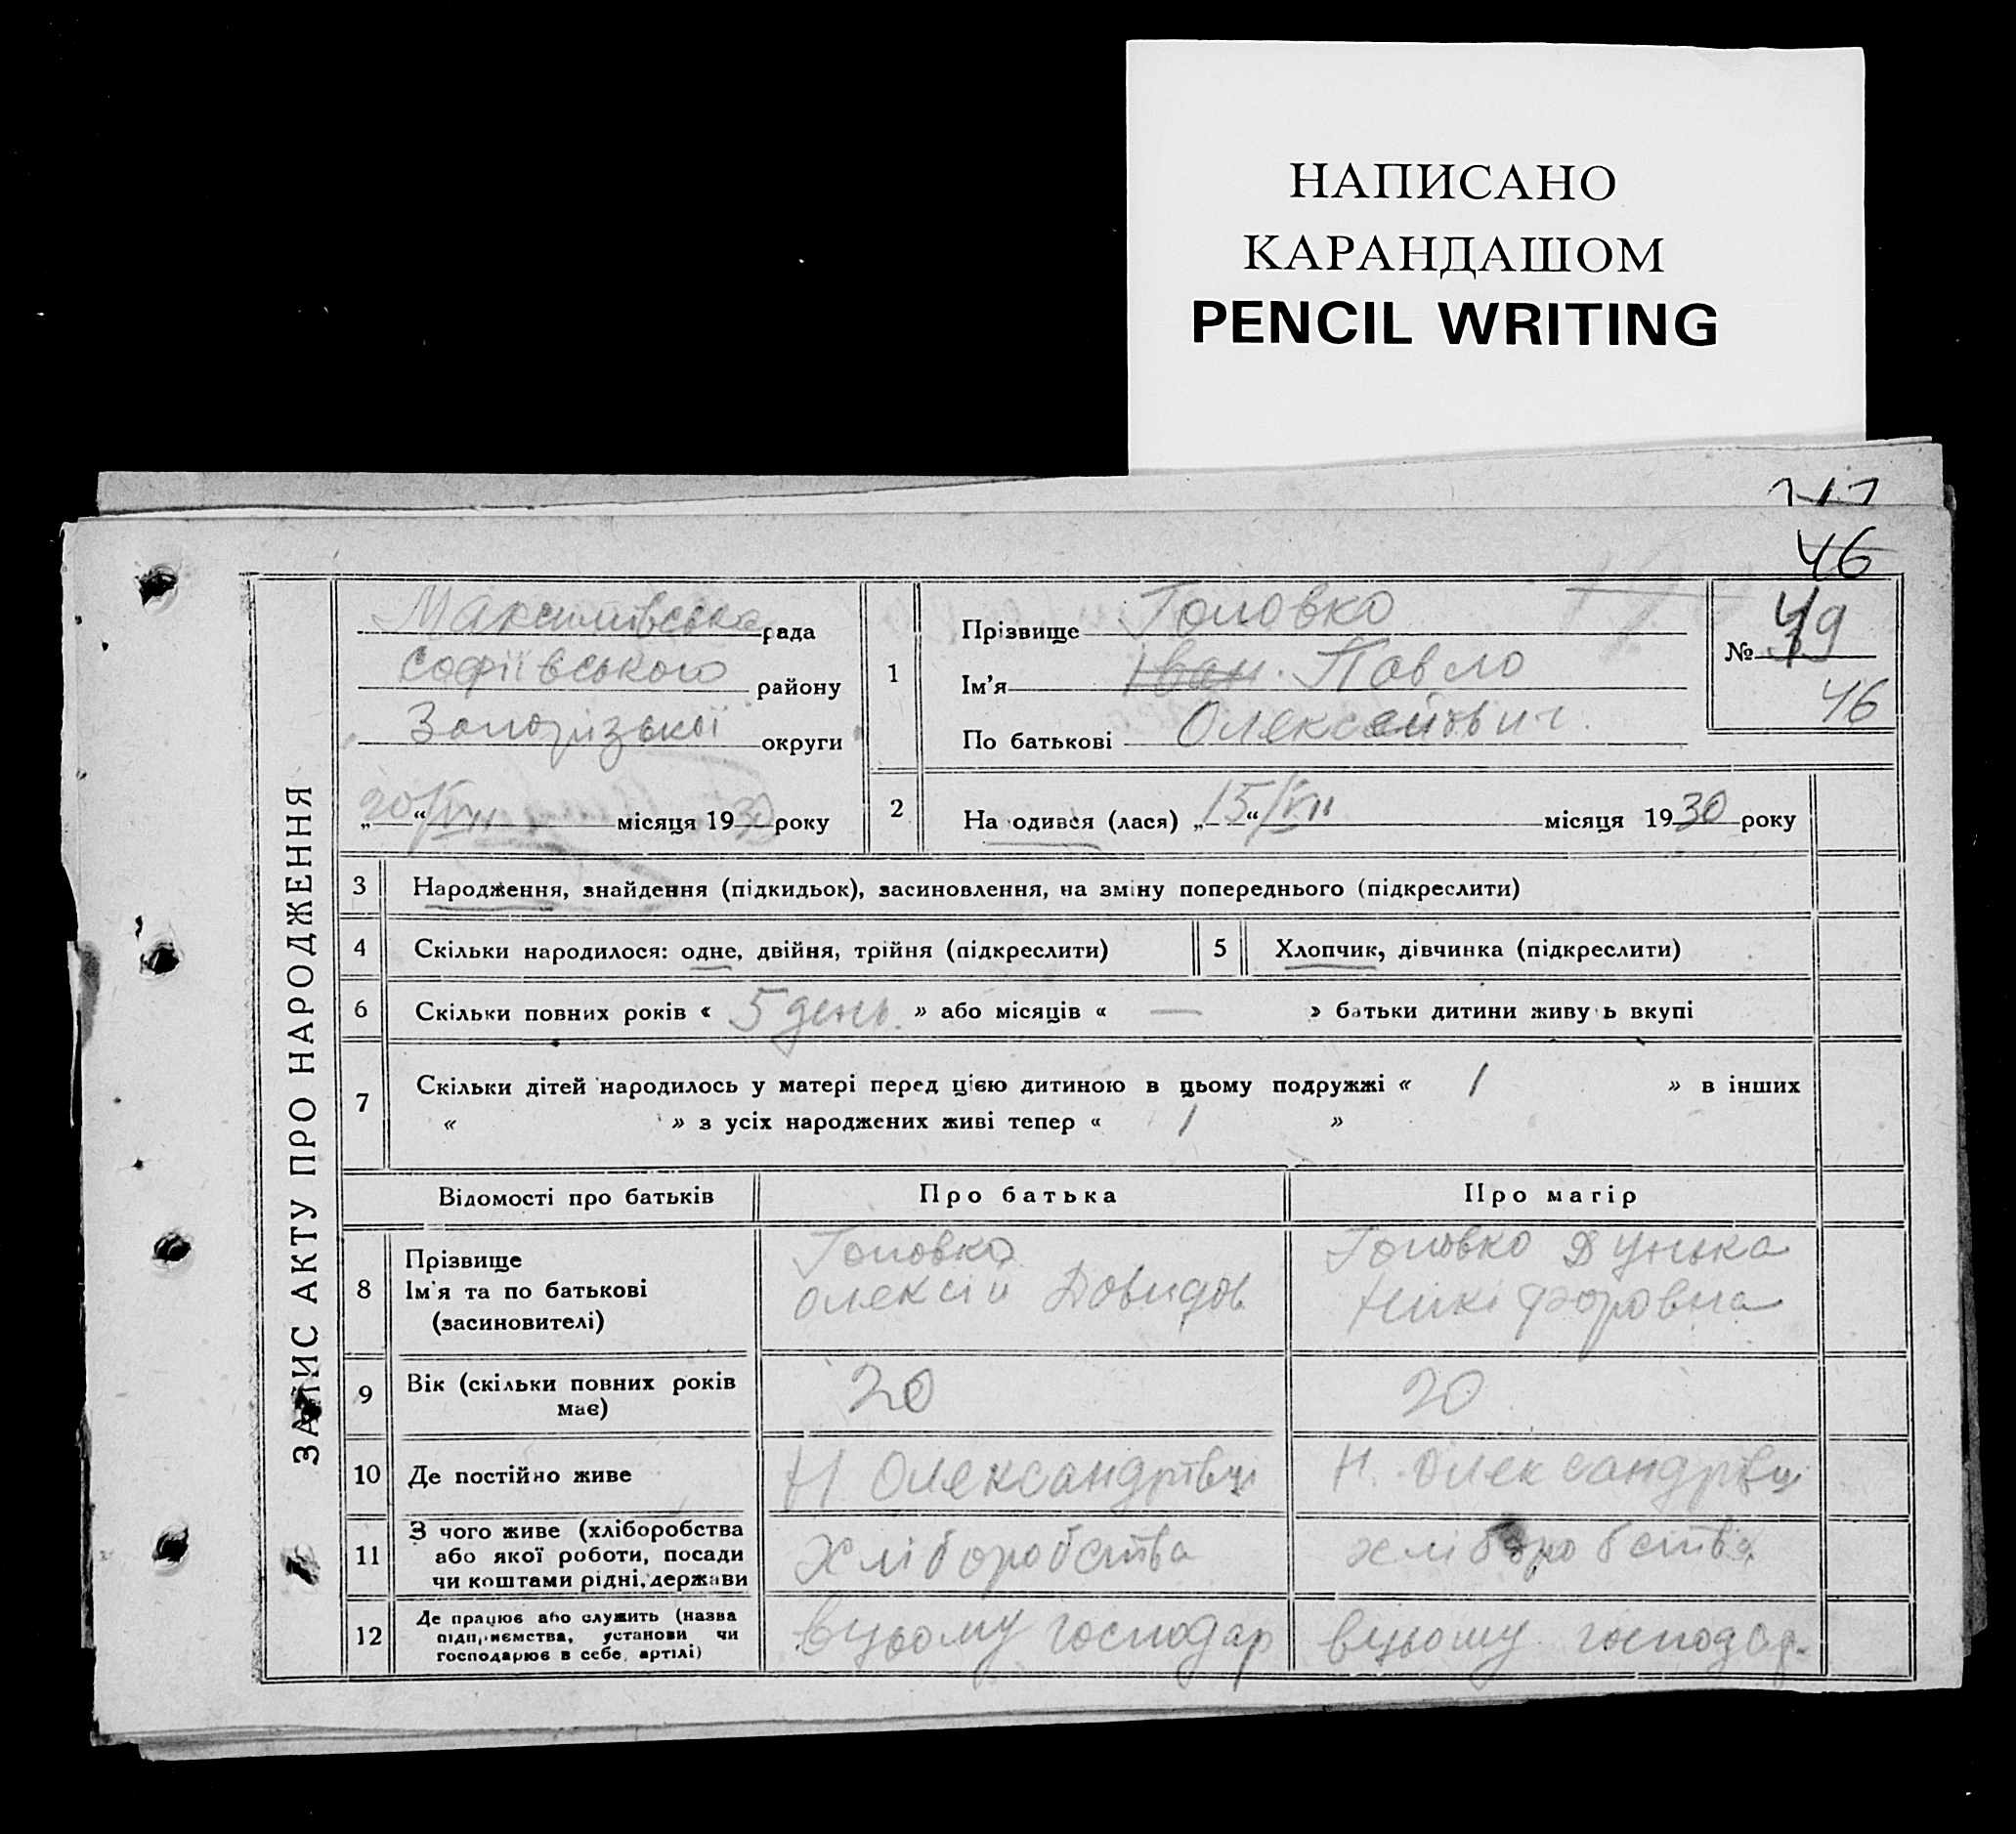 НАПИСАНО
КАРАНДАШОМ
PENCIL WRITING
46
ЗАПИС АКТУ ПРО НАРОДЖЕННЯ
Максимівська рада
Софіївського району
Запорізької округи
„20“ VII місяця 1930 року
1
Прізвище Головко
Ім'я Іван. Павло
По батькові Олексейович.
№ 39
46
2
На одився (лася) „15“ VII місяця 1930 року
3 Народження, знайдення (підкидьок), засиновлення, на зміну попереднього (підкреслити)
4 Скільки народилося: одне, двійня, трійня (підкреслити) 5 Хлопчик, дівчинка (підкреслити)
6 Скільки повних років « 5 день. » або місяців « — » батьки дитини живу ь вкупі
7 Скільки дітей народилось у матері перед цією дитиною в цьому подружжі « 1 » в інших
« » з усіх народжених живі тепер « 1 »
Відомості про батьків Про батька Про матір
8 Прізвище
Ім'я та по батькові
(засиновителі)
Головко
Олексій Довидов
Головко Дунька
Нікіфоровна
9 Вік (скільки повних років
має)
20 20
10 Де постійно живе Н Олександрівці Н. Олександрівці
11 З чого живе (хліборобства
або якої роботи, посади
чи коштами рідні, держави
хліборобства хліборобства
12 Де працює або служить (назва
підприємства, установи чи
господарює в себе, артілі)
вцьому господар вцьому господар.